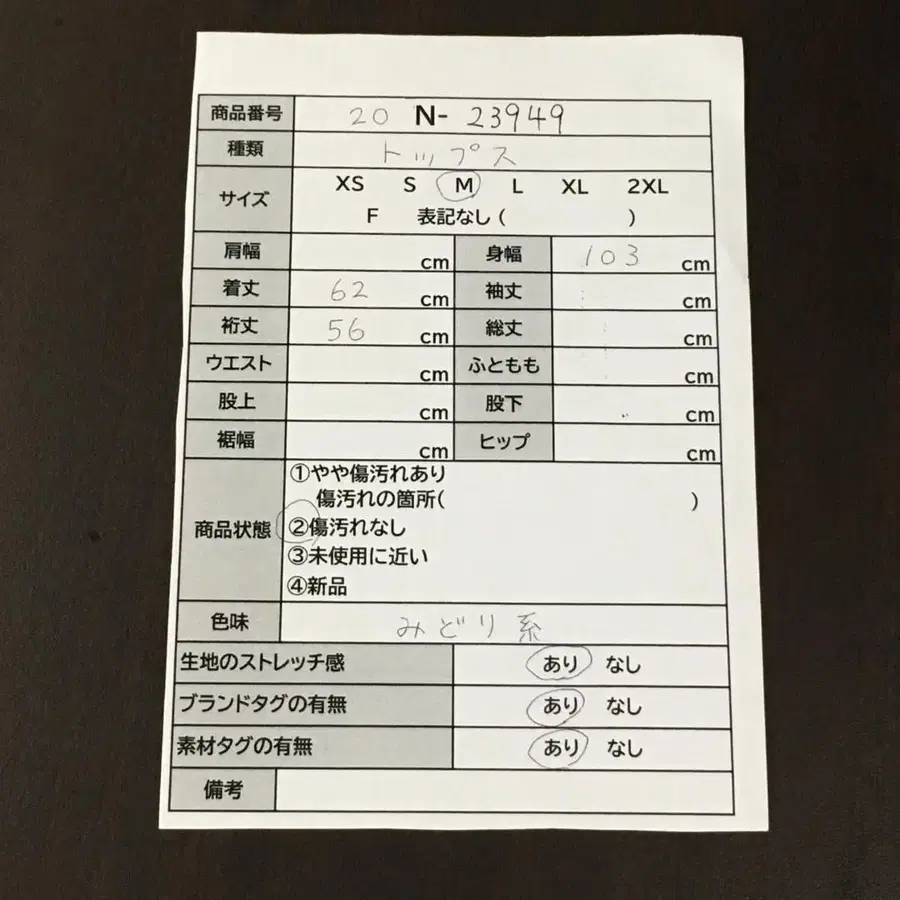 商品番号 20 N- 23949
種類 トップス
サイズ XS S M L XL 2XL
F 表記なし ( )
肩幅 cm 身幅 103 cm
着丈 62 cm 袖丈 cm
裄丈 56 cm 総丈 cm
ウエスト cm ふともも cm
股上 cm 股下 cm
裾幅 cm ヒップ cm
商品状態 ①やや傷汚れあり
傷汚れの箇所( )
②傷汚れなし
③未使用に近い
④新品
色味 みどり系
生地のストレッチ感 あり なし
ブランドタグの有無 あり なし
素材タグの有無 あり なし
備考